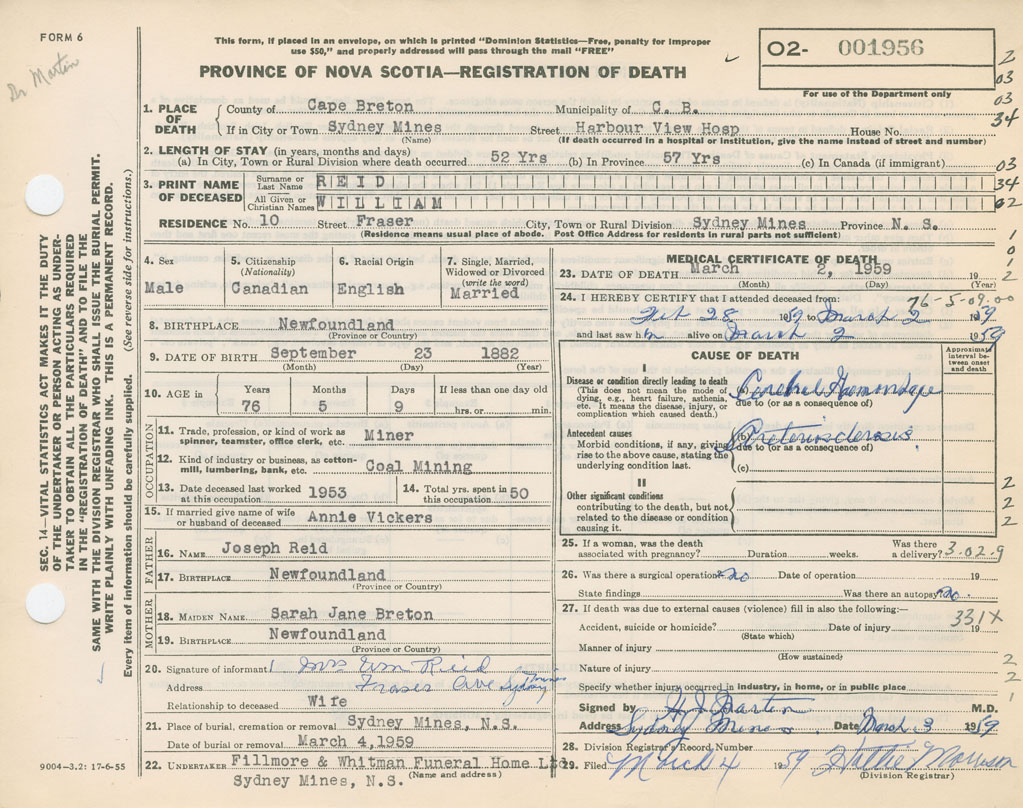 FORM 6
Dr Martin
This form, if placed in an envelope, on which is printed "Dominion Statistics—Free, penalty for improper
use $50," and properly addressed will pass through the mail "FREE"
PROVINCE OF NOVA SCOTIA—REGISTRATION OF DEATH
O2- 001956
For use of the Department only
2
03
03
34
03
34
02
1
0
1
2
SEC. 14—VITAL STATISTICS ACT MAKES IT THE DUTY
OF THE UNDERTAKER OR PERSON ACTING AS UNDER-
TAKER TO OBTAIN ALL THE PARTICULARS REQUIRED
IN THE "REGISTRATION OF DEATH" AND TO FILE THE
SAME WITH THE DIVISION REGISTRAR WHO SHALL ISSUE THE BURIAL PERMIT.
WRITE PLAINLY WITH UNFADING INK. THIS IS A PERMANENT RECORD.
Every item of information should be carefully supplied. (See reverse side for instructions.)
1. PLACE OF DEATH
County of Cape Breton Municipality of C. B.
If in City or Town Sydney Mines Street Harbour View Hosp House No.
(Name) (If death occurred in a hospital or institution, give the name instead of street and number)
2. LENGTH OF STAY (in years, months and days)
(a) In City, Town or Rural Division where death occurred 52 Yrs (b) In Province 57 Yrs (c) In Canada (if immigrant)
3. PRINT NAME OF DECEASED
Surname or Last Name REID
All Given or Christian Names WILLIAM
RESIDENCE No. 10 Street Fraser City, Town or Rural Division Sydney Mines Province N. S.
(Residence means usual place of abode. Post Office Address for residents in rural parts not sufficient)
4. Sex
Male
5. Citizenship
(Nationality)
Canadian
6. Racial Origin
English
7. Single, Married,
Widowed or Divorced
(write the word)
Married
8. BIRTHPLACE Newfoundland
(Province or Country)
9. DATE OF BIRTH September 23 1882
(Month) (Day) (Year)
10. AGE in
Years Months Days If less than one day old
76 5 9 hrs. or min.
OCCUPATION
11. Trade, profession, or kind of work as
spinner, teamster, office clerk, etc. Miner
12. Kind of industry or business, as cotton-
mill, lumbering, bank, etc. Coal Mining
13. Date deceased last worked
at this occupation 1953
14. Total yrs. spent in
this occupation 50
15. If married give name of wife
or husband of deceased Annie Vickers
FATHER
16. NAME Joseph Reid
17. BIRTHPLACE Newfoundland
(Province or Country)
MOTHER
18. MAIDEN NAME Sarah Jane Breton
19. BIRTHPLACE Newfoundland
(Province or Country)
20. Signature of informant Mrs Wm Reid
Address Fraser Ave Sydney Mines
Relationship to deceased Wife
21. Place of burial, cremation or removal Sydney Mines, N.S.
Date of burial or removal March 4,1959
22. UNDERTAKER Fillmore & Whitman Funeral Home Ltd
(Name and address)
Sydney Mines, N.S.
9004-3.2: 17-6-55
MEDICAL CERTIFICATE OF DEATH
23. DATE OF DEATH March 2, 1959 19
(Month) (Day) (Year)
24. I HEREBY CERTIFY that I attended deceased from:
76-5-09.00
Feb 28 1959 to March 2 1959
and last saw him alive on March 2 1959
CAUSE OF DEATH
Approximate interval between onset and death
I
Disease or condition directly leading to death
(This does not mean the mode of
dying, e.g., heart failure, asthenia,
etc. It means the disease, injury, or
complication which caused death.)
Cerebral Hemorrhage
due to (or as a consequence of)
Antecedent causes
Morbid conditions, if any, giving
rise to the above cause, stating the
underlying condition last.
(b) Arteriosclerosis
due to (or as a consequence of)
(c)
II
Other significant conditions
contributing to the death, but not
related to the disease or condition
causing it.
2
2
2
25. If a woman, was the death
associated with pregnancy? Duration weeks. Was there
a delivery? 3-02-9
26. Was there a surgical operation? no Date of operation 19
State findings Was there an autopsy? no.
27. If death was due to external causes (violence) fill in also the following:—
331X
Accident, suicide or homicide? Date of injury 19
(State which)
Manner of injury
(How sustained)
Nature of injury
2
2
1
Specify whether injury occurred in industry, in home, or in public place
Signed by H J Martin M.D.
Address Sydney Mines Date March 3 1959
28. Division Registrar's Record Number
29. Filed March 4 1959 Hattie Morrison
(Division Registrar)